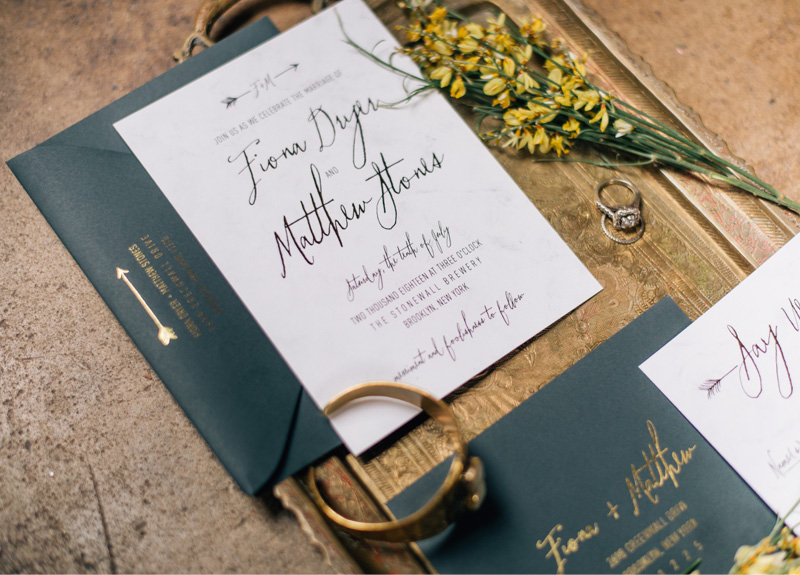 F+M
JOIN US AS WE CELEBRATE THE MARRIAGE OF
Fiona Dryer
AND
Matthew Stones
Saturday, the tenth of July
TWO THOUSAND EIGHTEEN AT THREE O'CLOCK
THE STONEWALL BREWERY
BROOKLYN, NEW YORK
merriment and foolishness to follow
FIONA DRYER + MATTHEW STONES
Say
Fiona + Matthew
BROOKLYN, NEW YORK